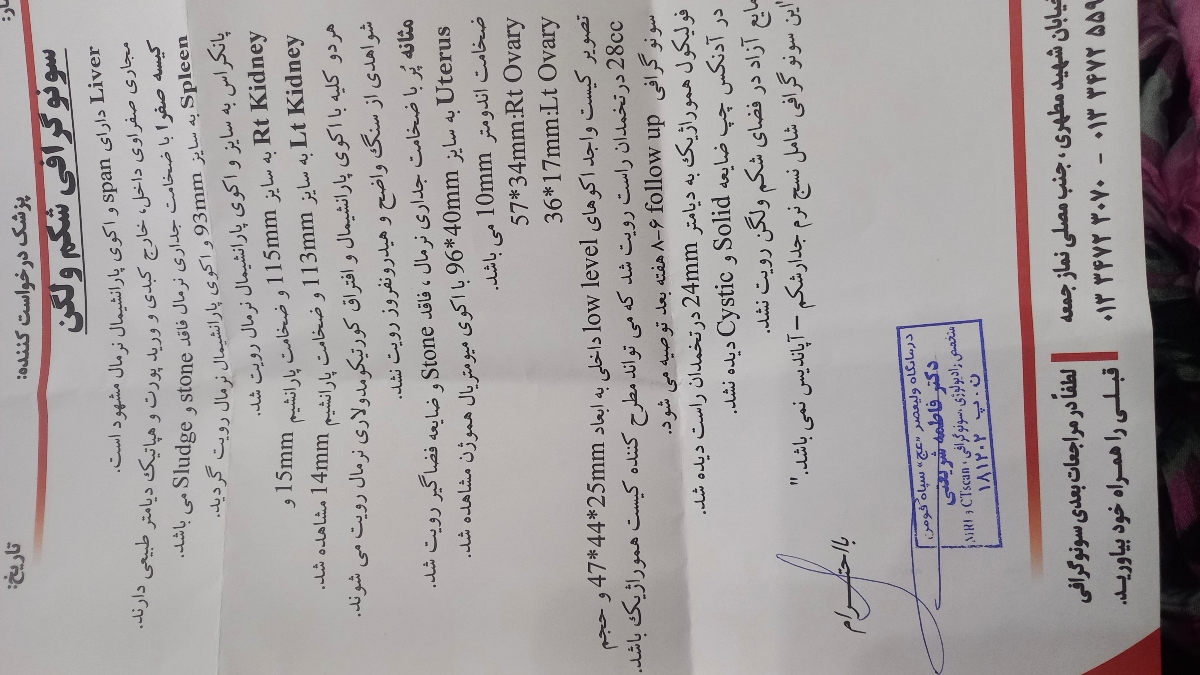 تاریخ:
پزشک درخواست کننده:
سونوگرافی شکم ولگن
Liver دارای span و اکوی پارانشیمال نرمال مشهود است.
مجاری صفراوی داخل، خارج کبدی و ورید پورت و هپاتیک دیامتر طبیعی دارند.
کیسه صفرا با ضخامت جداری نرمال فاقد stone و Sludge می باشد.
Spleen به سایز 93mm و اکوی پارانشیمال نرمال رویت گردید.
پانکراس به سایز و اکوی پارانشیمال نرمال رویت شد.
Rt Kidney به سایز 115mm و ضخامت پارانشیم 15mm و
Lt Kidney به سایز 113mm و ضخامت پارانشیم 14mm مشاهده شد.
هر دو کلیه با اکوی پارانشیمال و افتراق کورتیکومدولاری نرمال رویت می شوند.
شواهدی از سنگ واضح و هیدرونفروز رویت نشد.
مثانه پر با ضخامت جداری نرمال، فاقد Stone و ضایعه فضاگیر رویت شد.
Uterus به سایز 96*40mm با اکوی میومتریال هموژن مشاهده شد.
ضخامت اندومتر 10mm می باشد.
57*34mm:Rt Ovary
36*17mm:Lt Ovary
تصویر کیست واجد اکوهای low level داخلی به ابعاد 47*44*25mm و حجم
28cc درتخمدان راست رویت شد که می تواند مطرح کننده کیست هموراژیک باشد.
سونوگرافی follow up ۶-۸ هفته بعد توصیه می شود.
فولیکول هموراژیک به دیامتر 24mm درتخمدان راست دیده شد.
در آدنکس چپ ضایعه Solid و Cystic دیده نشد.
مایع آزاد در فضای شکم ولگن رویت نشد.
"این سونوگرافی شامل نسج نرم جدارشکم – آپاندیس نمی باشد."
بااحترام
درمانگاه ولیعصر «عج» سپاه فومن
دکتر فاطمه شریعتی
متخصص رادیولوژی، سونوگرافی، CTscan و MRI
ن.پ ۱۸۱۲۰۲
خیابان شهید مطهری، جنب مصلی نماز جمعه
۰۱۳ ۳۴۷۲ ۳۰۷۰ - ۰۱۳ ۳۴۷۲ ۵۵۹
لطفاً در مراجعات بعدی سونوگرافی
قبلی را همراه خود بیاورید.